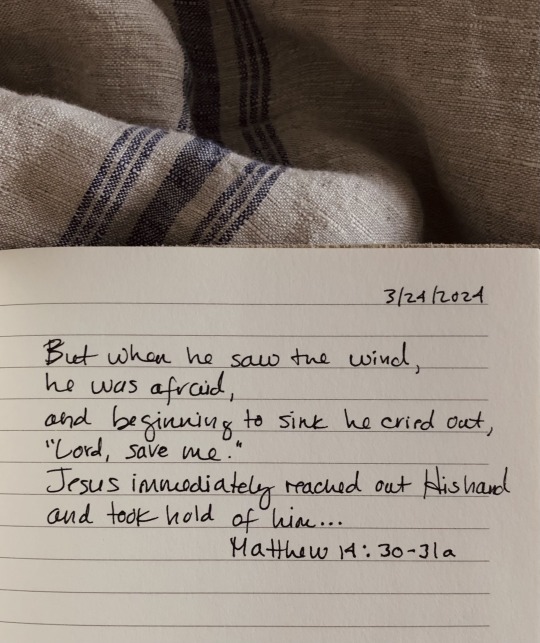 3/24/2024
But when he saw the wind,
he was afraid,
and beginning to sink he cried out,
"Lord, save me."
Jesus immediately reached out His hand
and took hold of him...
Matthew 14:30-31a